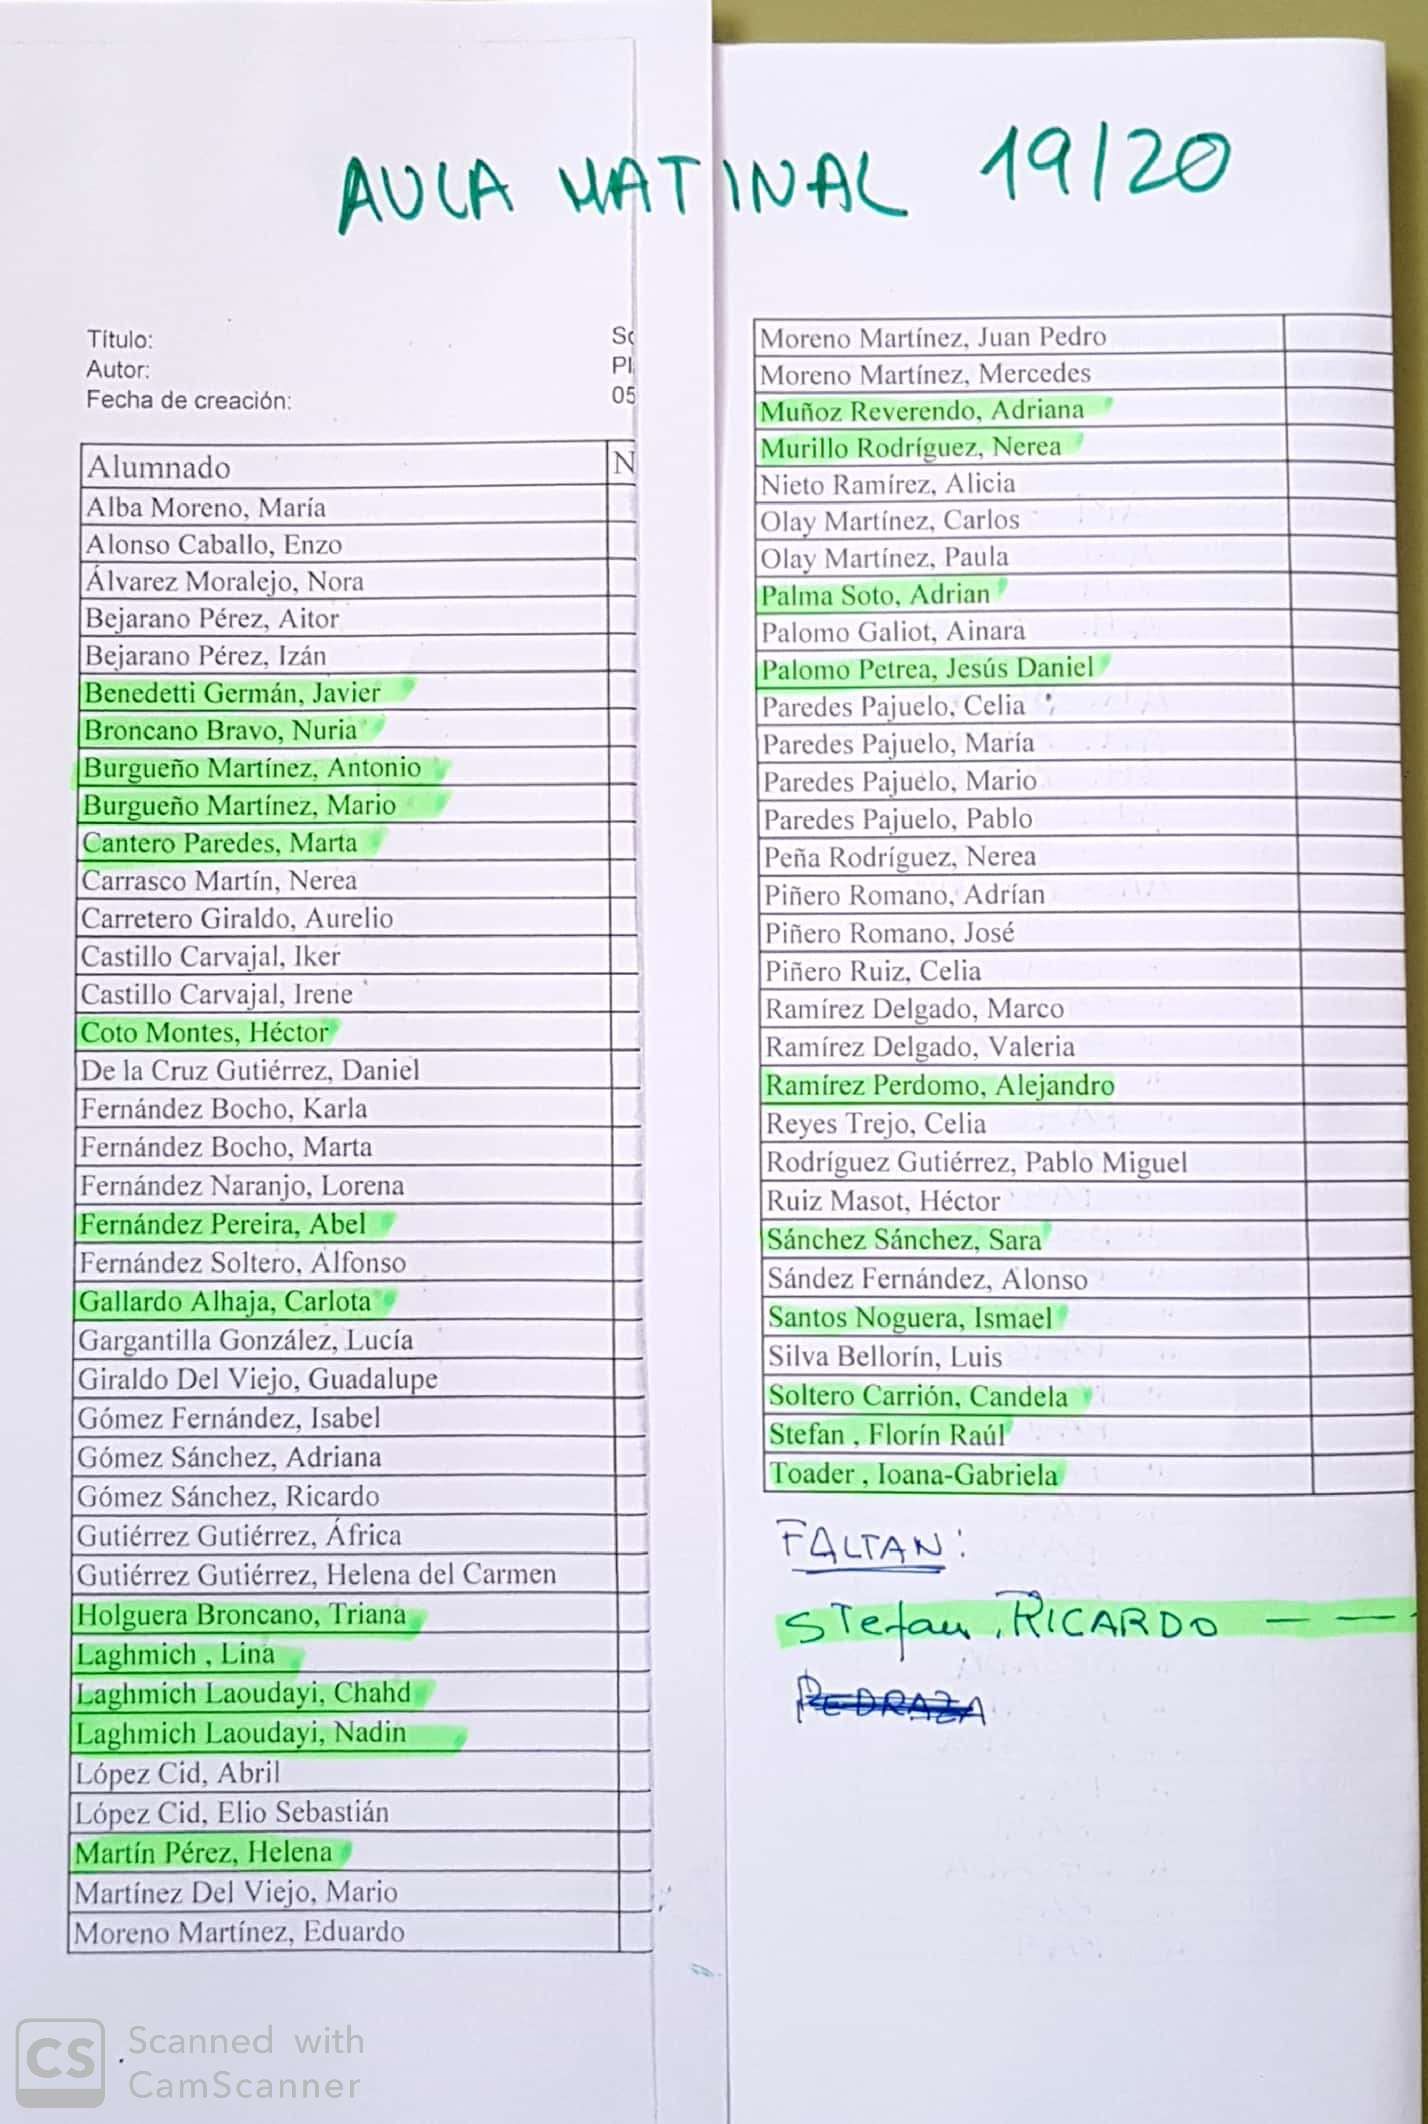 AULA MATINAL 19/20
Título: So
Autor: Pl
Fecha de creación: 05
Alumnado N
Alba Moreno, María
Alonso Caballo, Enzo
Álvarez Moralejo, Nora
Bejarano Pérez, Aitor
Bejarano Pérez, Izán
Benedetti Germán, Javier
Broncano Bravo, Nuria
Burgueño Martínez, Antonio
Burgueño Martínez, Mario
Cantero Paredes, Marta
Carrasco Martín, Nerea
Carretero Giraldo, Aurelio
Castillo Carvajal, Iker
Castillo Carvajal, Irene
Coto Montes, Héctor
De la Cruz Gutiérrez, Daniel
Fernández Bocho, Karla
Fernández Bocho, Marta
Fernández Naranjo, Lorena
Fernández Pereira, Abel
Fernández Soltero, Alfonso
Gallardo Alhaja, Carlota
Gargantilla González, Lucía
Giraldo Del Viejo, Guadalupe
Gómez Fernández, Isabel
Gómez Sánchez, Adriana
Gómez Sánchez, Ricardo
Gutiérrez Gutiérrez, África
Gutiérrez Gutiérrez, Helena del Carmen
Holguera Broncano, Triana
Laghmich , Lina
Laghmich Laoudayi, Chahd
Laghmich Laoudayi, Nadin
López Cid, Abril
López Cid, Elio Sebastián
Martín Pérez, Helena
Martínez Del Viejo, Mario
Moreno Martínez, Eduardo
Moreno Martínez, Juan Pedro
Moreno Martínez, Mercedes
Muñoz Reverendo, Adriana
Murillo Rodríguez, Nerea
Nieto Ramírez, Alicia
Olay Martínez, Carlos
Olay Martínez, Paula
Palma Soto, Adrian
Palomo Galiot, Ainara
Palomo Petrea, Jesús Daniel
Paredes Pajuelo, Celia
Paredes Pajuelo, María
Paredes Pajuelo, Mario
Paredes Pajuelo, Pablo
Peña Rodríguez, Nerea
Piñero Romano, Adrían
Piñero Romano, José
Piñero Ruiz, Celia
Ramírez Delgado, Marco
Ramírez Delgado, Valeria
Ramírez Perdomo, Alejandro
Reyes Trejo, Celia
Rodríguez Gutiérrez, Pablo Miguel
Ruiz Masot, Héctor
Sánchez Sánchez, Sara
Sández Fernández, Alonso
Santos Noguera, Ismael
Silva Bellorín, Luis
Soltero Carrión, Candela
Stefan , Florín Raúl
Toader , Ioana-Gabriela
FALTAN:
Stefan, RICARDO — —
PEDRAZA
CS Scanned with
CamScanner